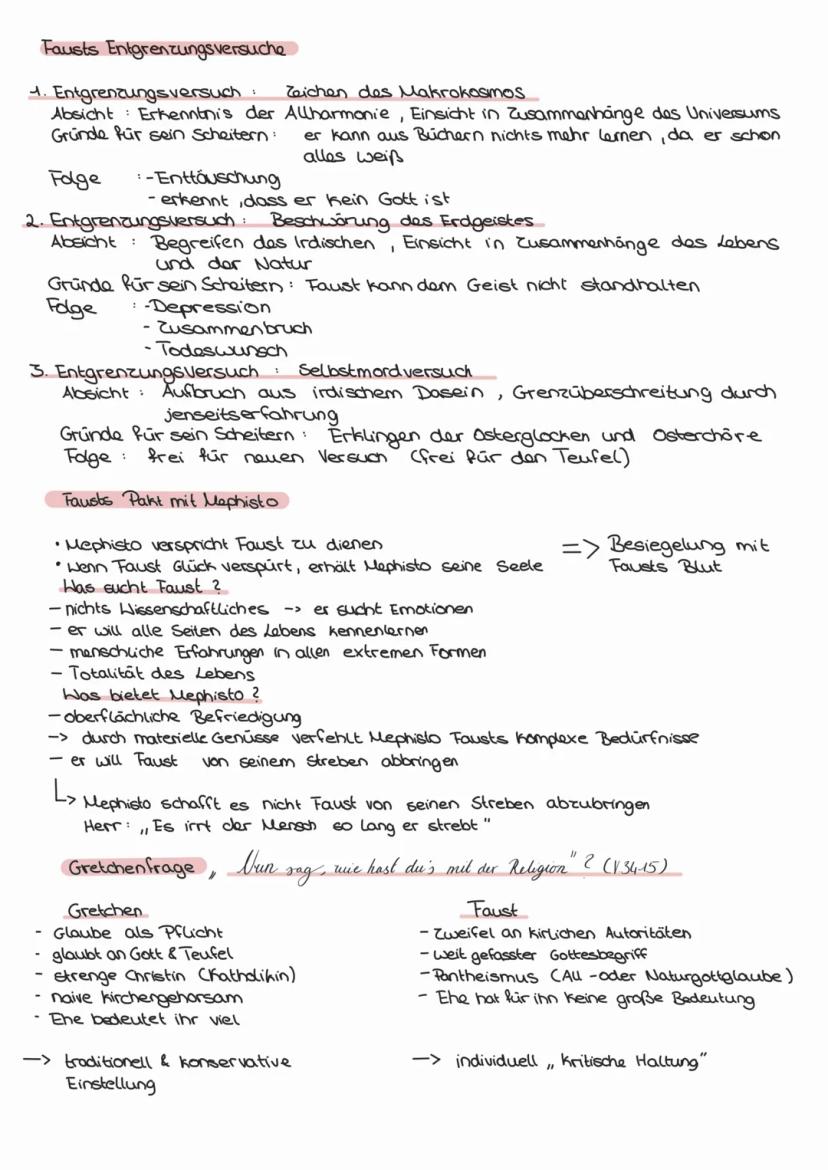 Fausts Entgrenzungsversuche
1. Entgrenzungsversuch : Zeichen des Makrokosmos
Absicht : Erkenntnis der Allharmonie , Einsicht in Zusammenhänge des Universums
Gründe für sein Scheitern : er kann aus Büchern nichts mehr lernen , da er schon
alles weiß
Folge :- Enttäuschung
- erkennt , dass er kein Gott ist
2. Entgrenzungsversuch : Beschwörung des Erdgeistes
Absicht : Begreifen des Irdischen , Einsicht in Zusammenhänge des Lebens
und der Natur
Gründe für sein Scheitern : Faust kann dem Geist nicht standhalten
Folge : - Depression
- Zusammenbruch
- Todeswunsch
3. Entgrenzungsversuch : Selbstmordversuch
Absicht : Aufbruch aus irdischem Dasein , Grenzüberschreitung durch
jenseitserfahrung
Gründe für sein Scheitern : Erklingen der Osterglocken und Osterchöre
Folge : frei für neuen Versuch (frei für den Teufel)
Fausts Pakt mit Mephisto
• Mephisto verspricht Faust zu dienen => Besiegelung mit
• Wenn Faust Glück verspürt, erhält Mephisto seine Seele Fausts Blut
Was sucht Faust ?
- nichts Wissenschaftliches -> er sucht Emotionen
- er will alle Seiten des Lebens kennenlernen
- menschliche Erfahrungen in allen extremen Formen
- Totalität des Lebens
Was bietet Mephisto ?
- oberflächliche Befriedigung
-> durch materielle Genüsse verfehlt Mephisto Fausts komplexe Bedürfnisse
- er will Faust von seinem Streben abbringen
↳ Mephisto schafft es nicht Faust von seinen Streben abzubringen
Herr : „ Es irrt der Mensch so lang er strebt "
Gretchenfrage „ Nun sag, wie hast du's mit der Religion" ? (V3415)
Gretchen
- Glaube als Pflicht
- glaubt an Gott & Teufel
- strenge Christin (Katholikin)
- naive Kirchengehorsam
- Ehe bedeutet ihr viel
-> traditionell & konservative
Einstellung
Faust
- Zweifel an kirlichen Autoritäten
- weit gefasster Gottesbegriff
- Pantheismus (All -oder Naturgottglaube)
- Ehe hat für ihn keine große Bedeutung
-> individuell „ Kritische Haltung"